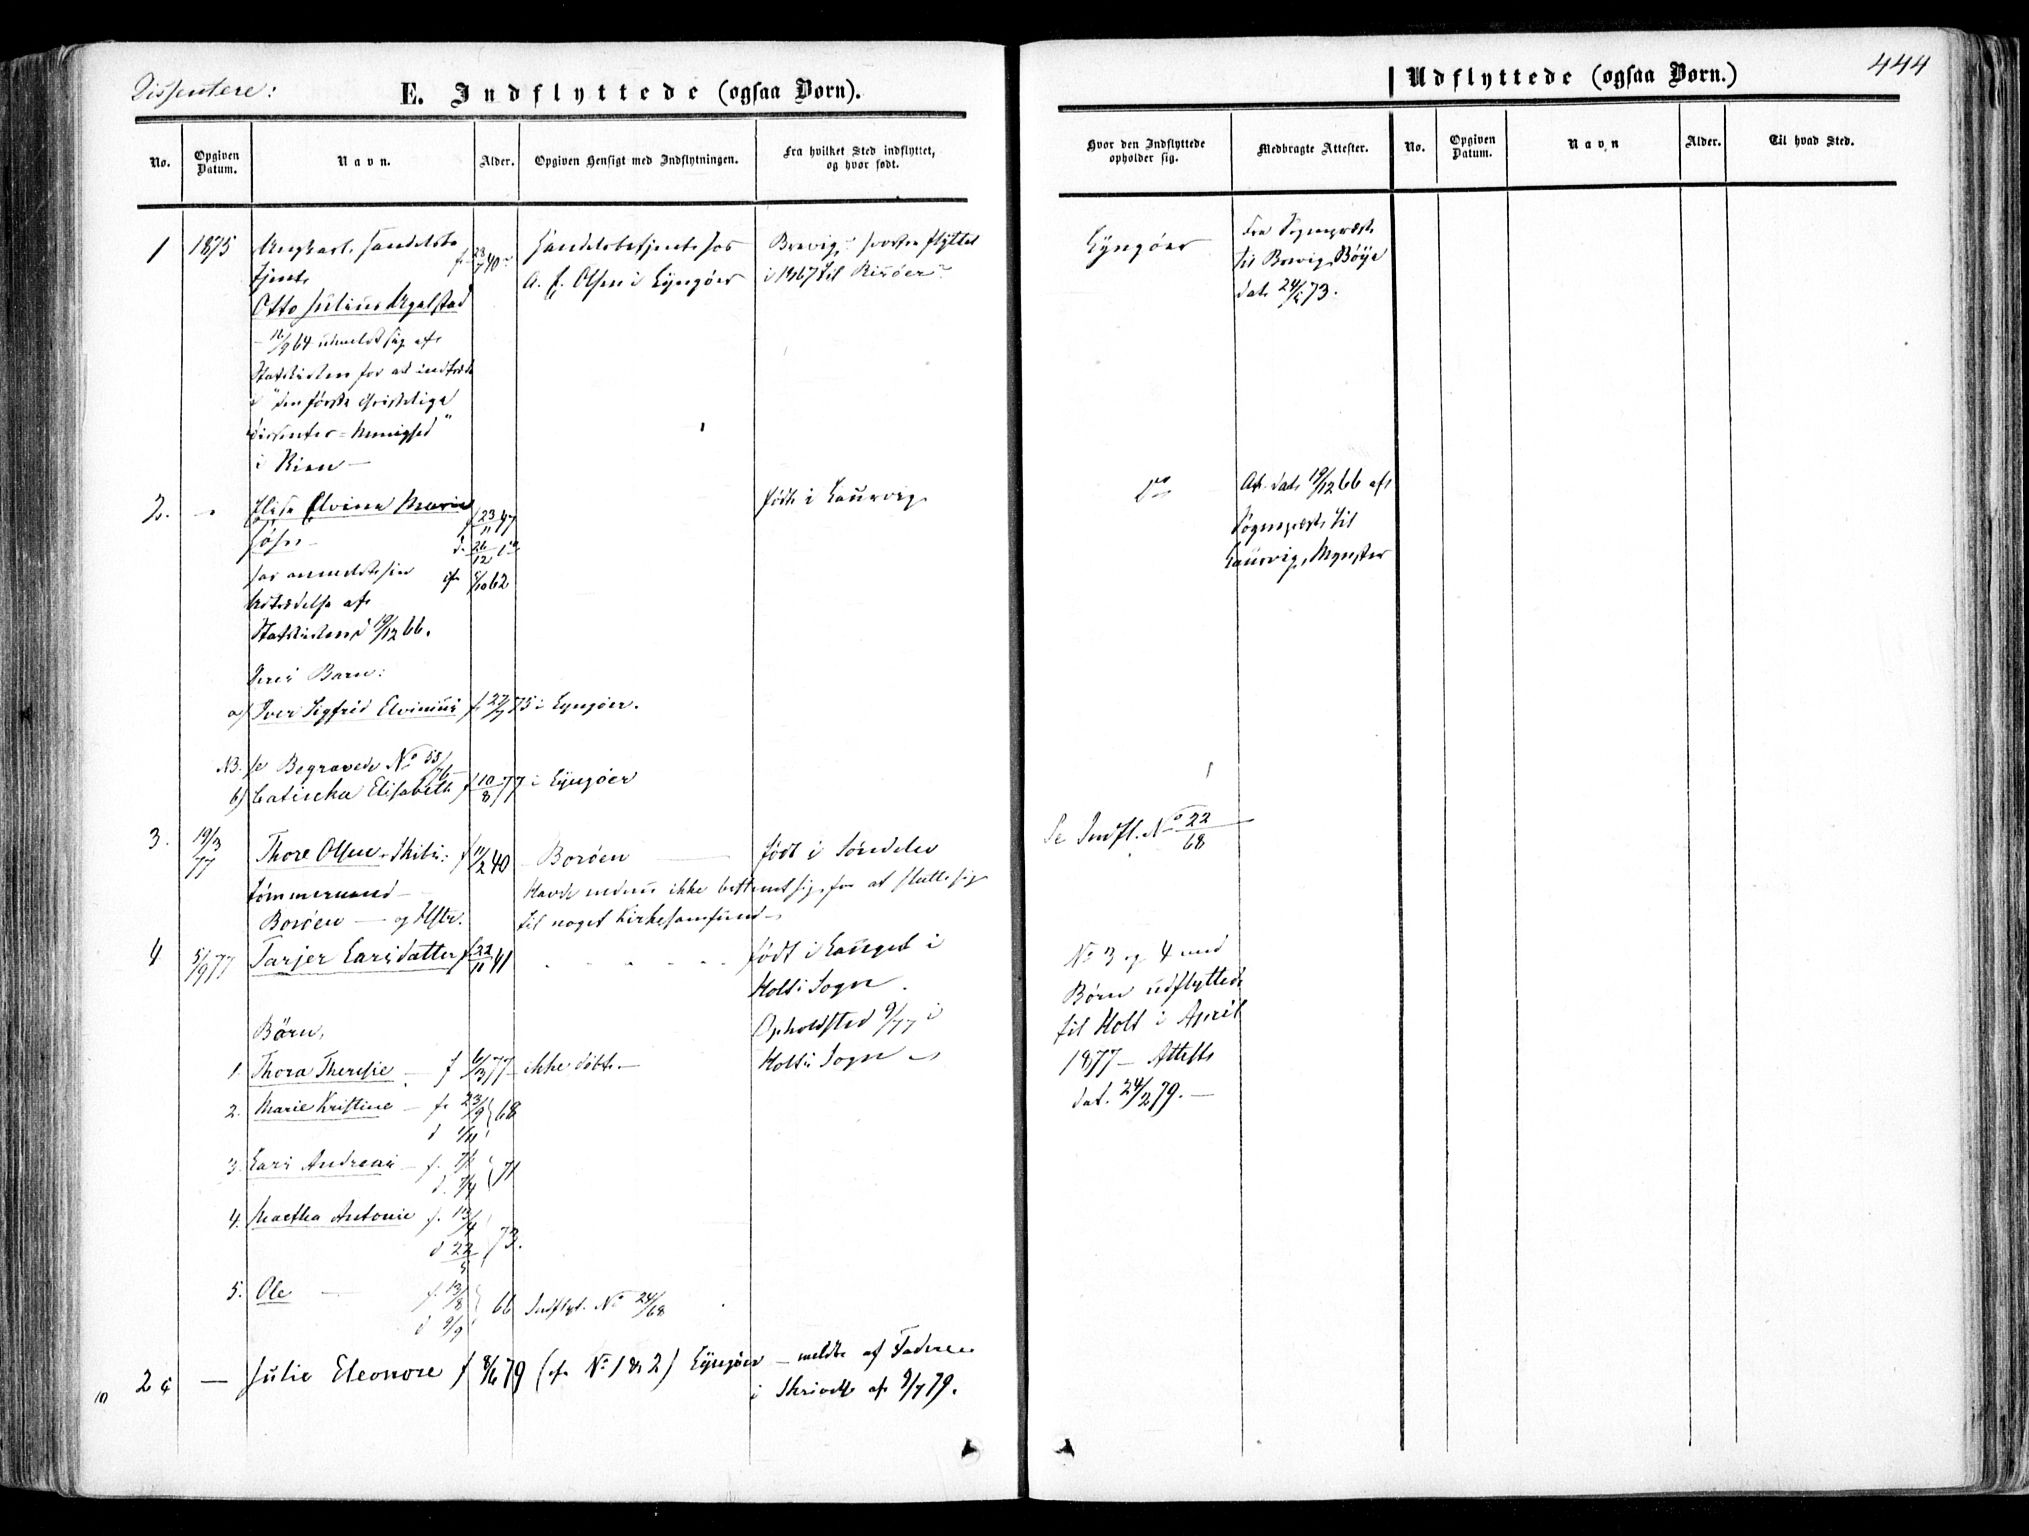 Dissentere:
E. Indflyttede (ogsaa Børn).
No.
Opgiven Datum.
Navn.
Alder.
Opgiven Hensigt med Indflytningen.
Fra hvilket Sted indflyttet, og hvor født.
1
1875
Ungkarl, Handelsbe
tjent
Otto Julius Ugelstad
f. 23/7 40
Handelsbetjent hos
A. F. Olsen i Lyngøer
Brevig,
i 1867 til Risøer
16/9 64 udmeldt sig af
Statskirken for at indtræde
i "den første christelige
Dissenter-Menighed"
i Skien
2.
Elise Elvine Marie
f 23/11 47
d. 26/12
cfr 5/10 62
har anmeldt sin
Udtrædelse af
Statskirken d 19/12 66.
født i Laurvig
Deres Barn:
a) Iver Sigfrid Elvinius f. 27/7 75 i Lyngøer.
NB. se Begravede No 55/76
b) Catinka Elisabeth f 10/8 77 i Lyngøer
3.
19/3 77
Thore Olsen
f 11/2 40
Borøen
født i Søndeled
Tømmermand
Borøen og Hstr.
Havde endnu ikke bestemt sig for at slutte sig
til noget Kirkesamfund
4
5/9 77
Tarjer Larsdatter
f 22/11 41
født i Lauget i
Holts Sogn.
Børn,
Opholdsted 9/77 i
Holts Sogn
1. Thora Theresie f 6/3 77 ikke døbt.
2. Marie Kristine f. 23/9 68
d 1/11
3. Lars Andreas f. 7/1 71
d. 7/4
4. Martha Antonie f. 13/4 73.
d 22/5
5. Ole f. 13/8 66 Indflyt. No 24/68
d 9/9
2 c
Julie Eleonore f 8/6 79 (cfr No 1 & 2) Lyngøer meldt af Faderen
i Skrivelse af 9/7 79.
444
Udflyttede (ogsaa Børn.)
Hvor den Indflyttede opholder sig.
Medbragte Attester.
No.
Opgiven Datum.
Navn
Alder.
Til hvad Sted.
Lyngøer
Fra Sogneprest
til Brevig, Böye
dat. 24/5 73.
do
Att. dat. 19/12 66 af
Sognepræst til
Laurvig, Mynster
Se Indfl. No 22/68
No 3 og 4 med
Børn udflyttede
til Holt i April
1877 Attest
dat. 24/2 79.